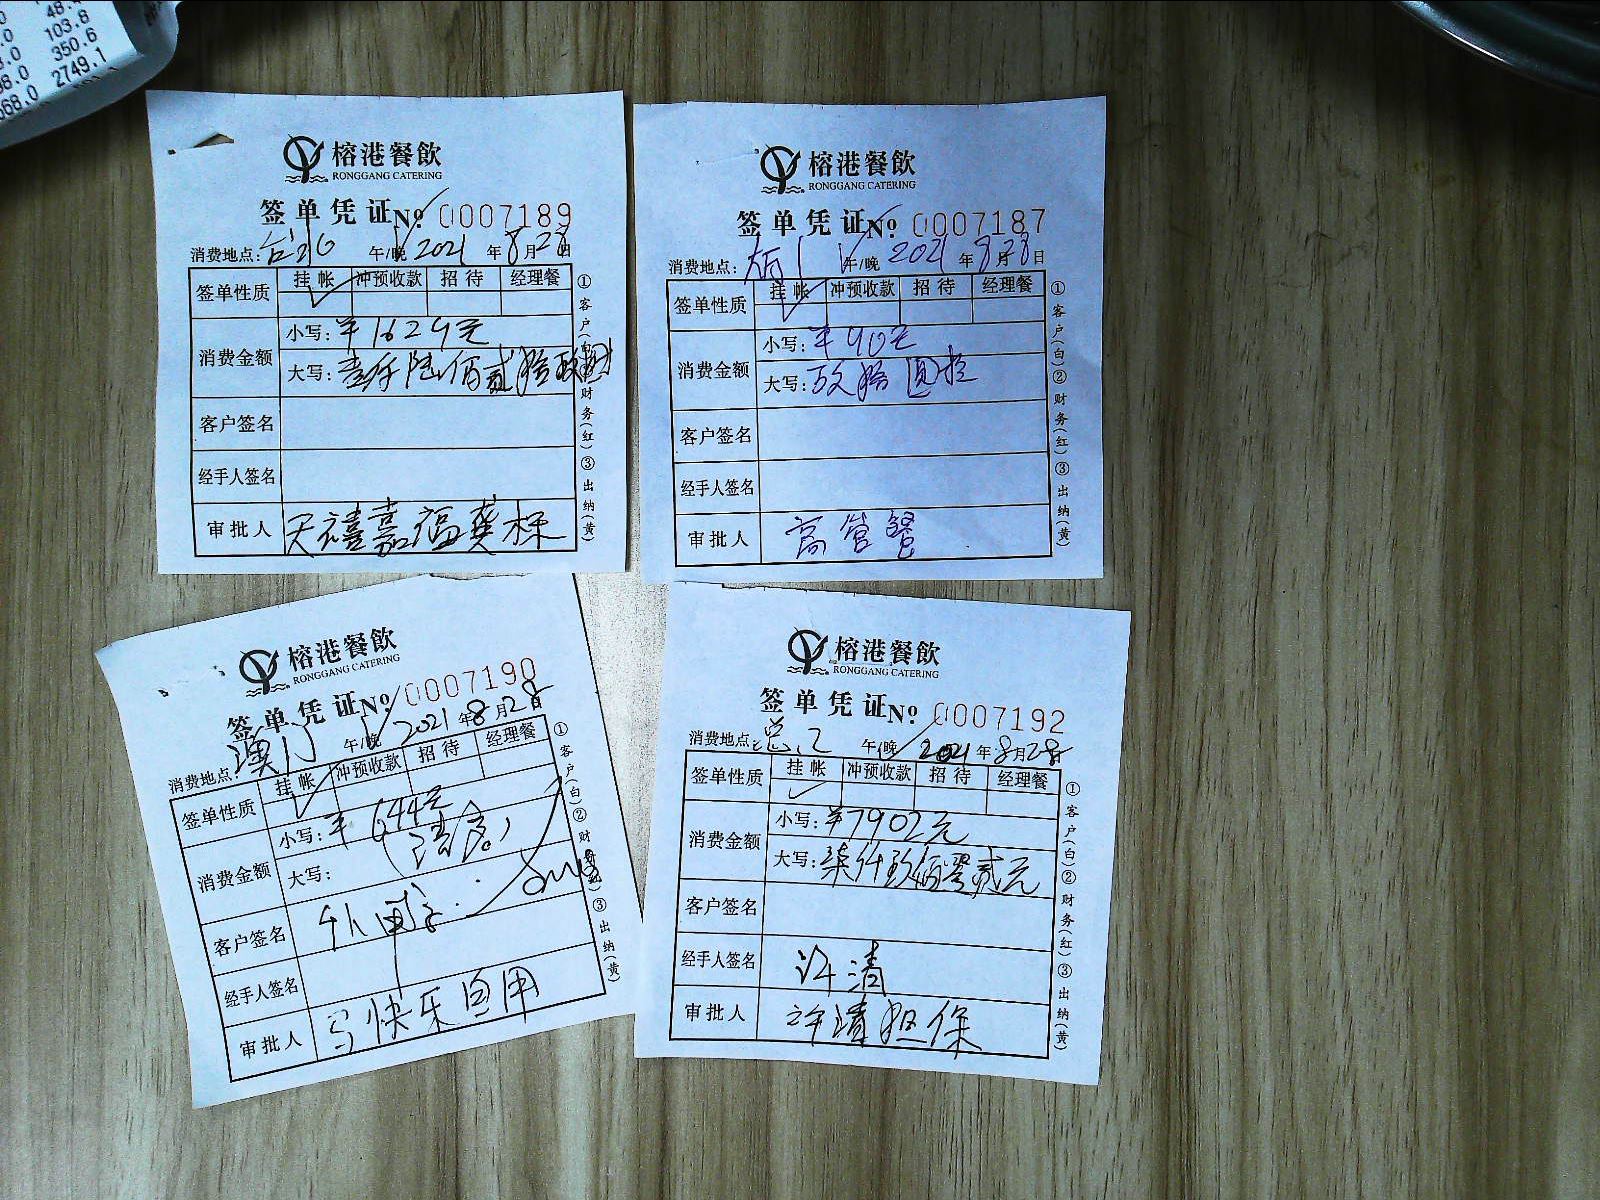 48.
103.8
350.6
2749.1
568.0
榕港餐飲
RONGGANG CATERING
签单凭证 No 0007189
消费地点: 午/晚 2021年8月28日
签单性质 挂帐 冲预收款 招待 经理餐
消费金额
小写: ¥1629元
大写: 壹仟陆佰贰拾玖圆
客户签名
经手人签名
审批人 天禧嘉福龚栋
①客户(白)②财务(红)③出纳(黄)
榕港餐飲
RONGGANG CATERING
签单凭证 No 0007187
消费地点: 午/晚 2021年8月28日
签单性质 挂帐 冲预收款 招待 经理餐
消费金额
小写: ¥90元
大写: 玖拾圆整
客户签名
经手人签名
审批人 高管餐
①客户(白)②财务(红)③出纳(黄)
榕港餐飲
RONGGANG CATERING
签单凭证 No 0007190
消费地点: 澳门 午/晚 2021年8月28日
签单性质 挂帐 冲预收款 招待 经理餐
消费金额
小写: ¥644元
大写:
客户签名
经手人签名
审批人 写快乐自用
①客户(白)②财务(红)③出纳(黄)
榕港餐飲
RONGGANG CATERING
签单凭证 No 0007192
消费地点: 午/晚 2021年8月28日
签单性质 挂帐 冲预收款 招待 经理餐
消费金额
小写: ¥7902元
大写: 柒仟玖佰零贰元
客户签名
经手人签名 许清
审批人 许清担保
①客户(白)②财务(红)③出纳(黄)